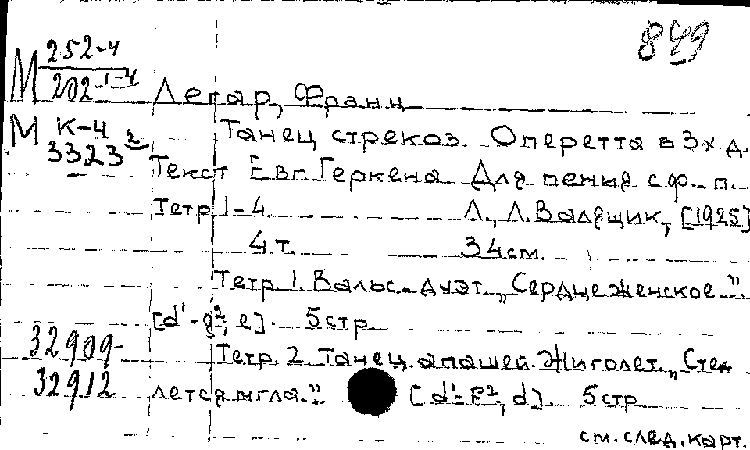 849
М 252-4
202-1-4
Легар, Франц
М К-4
3323²
Танец стрекоз. Оперетта в 3х д.
Текст Евг. Геркена. Для пения с ф.-п.
Тетр. 1-4 Л., Л. Валящик, [1925]
4 т. 34 см.
Тетр. 1. Вальс-дуэт „Сердце женское..."
[d¹-g², e]. 5 стр.
32909-
32912
Тетр. 2. Танец апашей. Жиголет. „Стел
лется мгла.." [d¹- , d]. 5 стр.
см. след. карт.